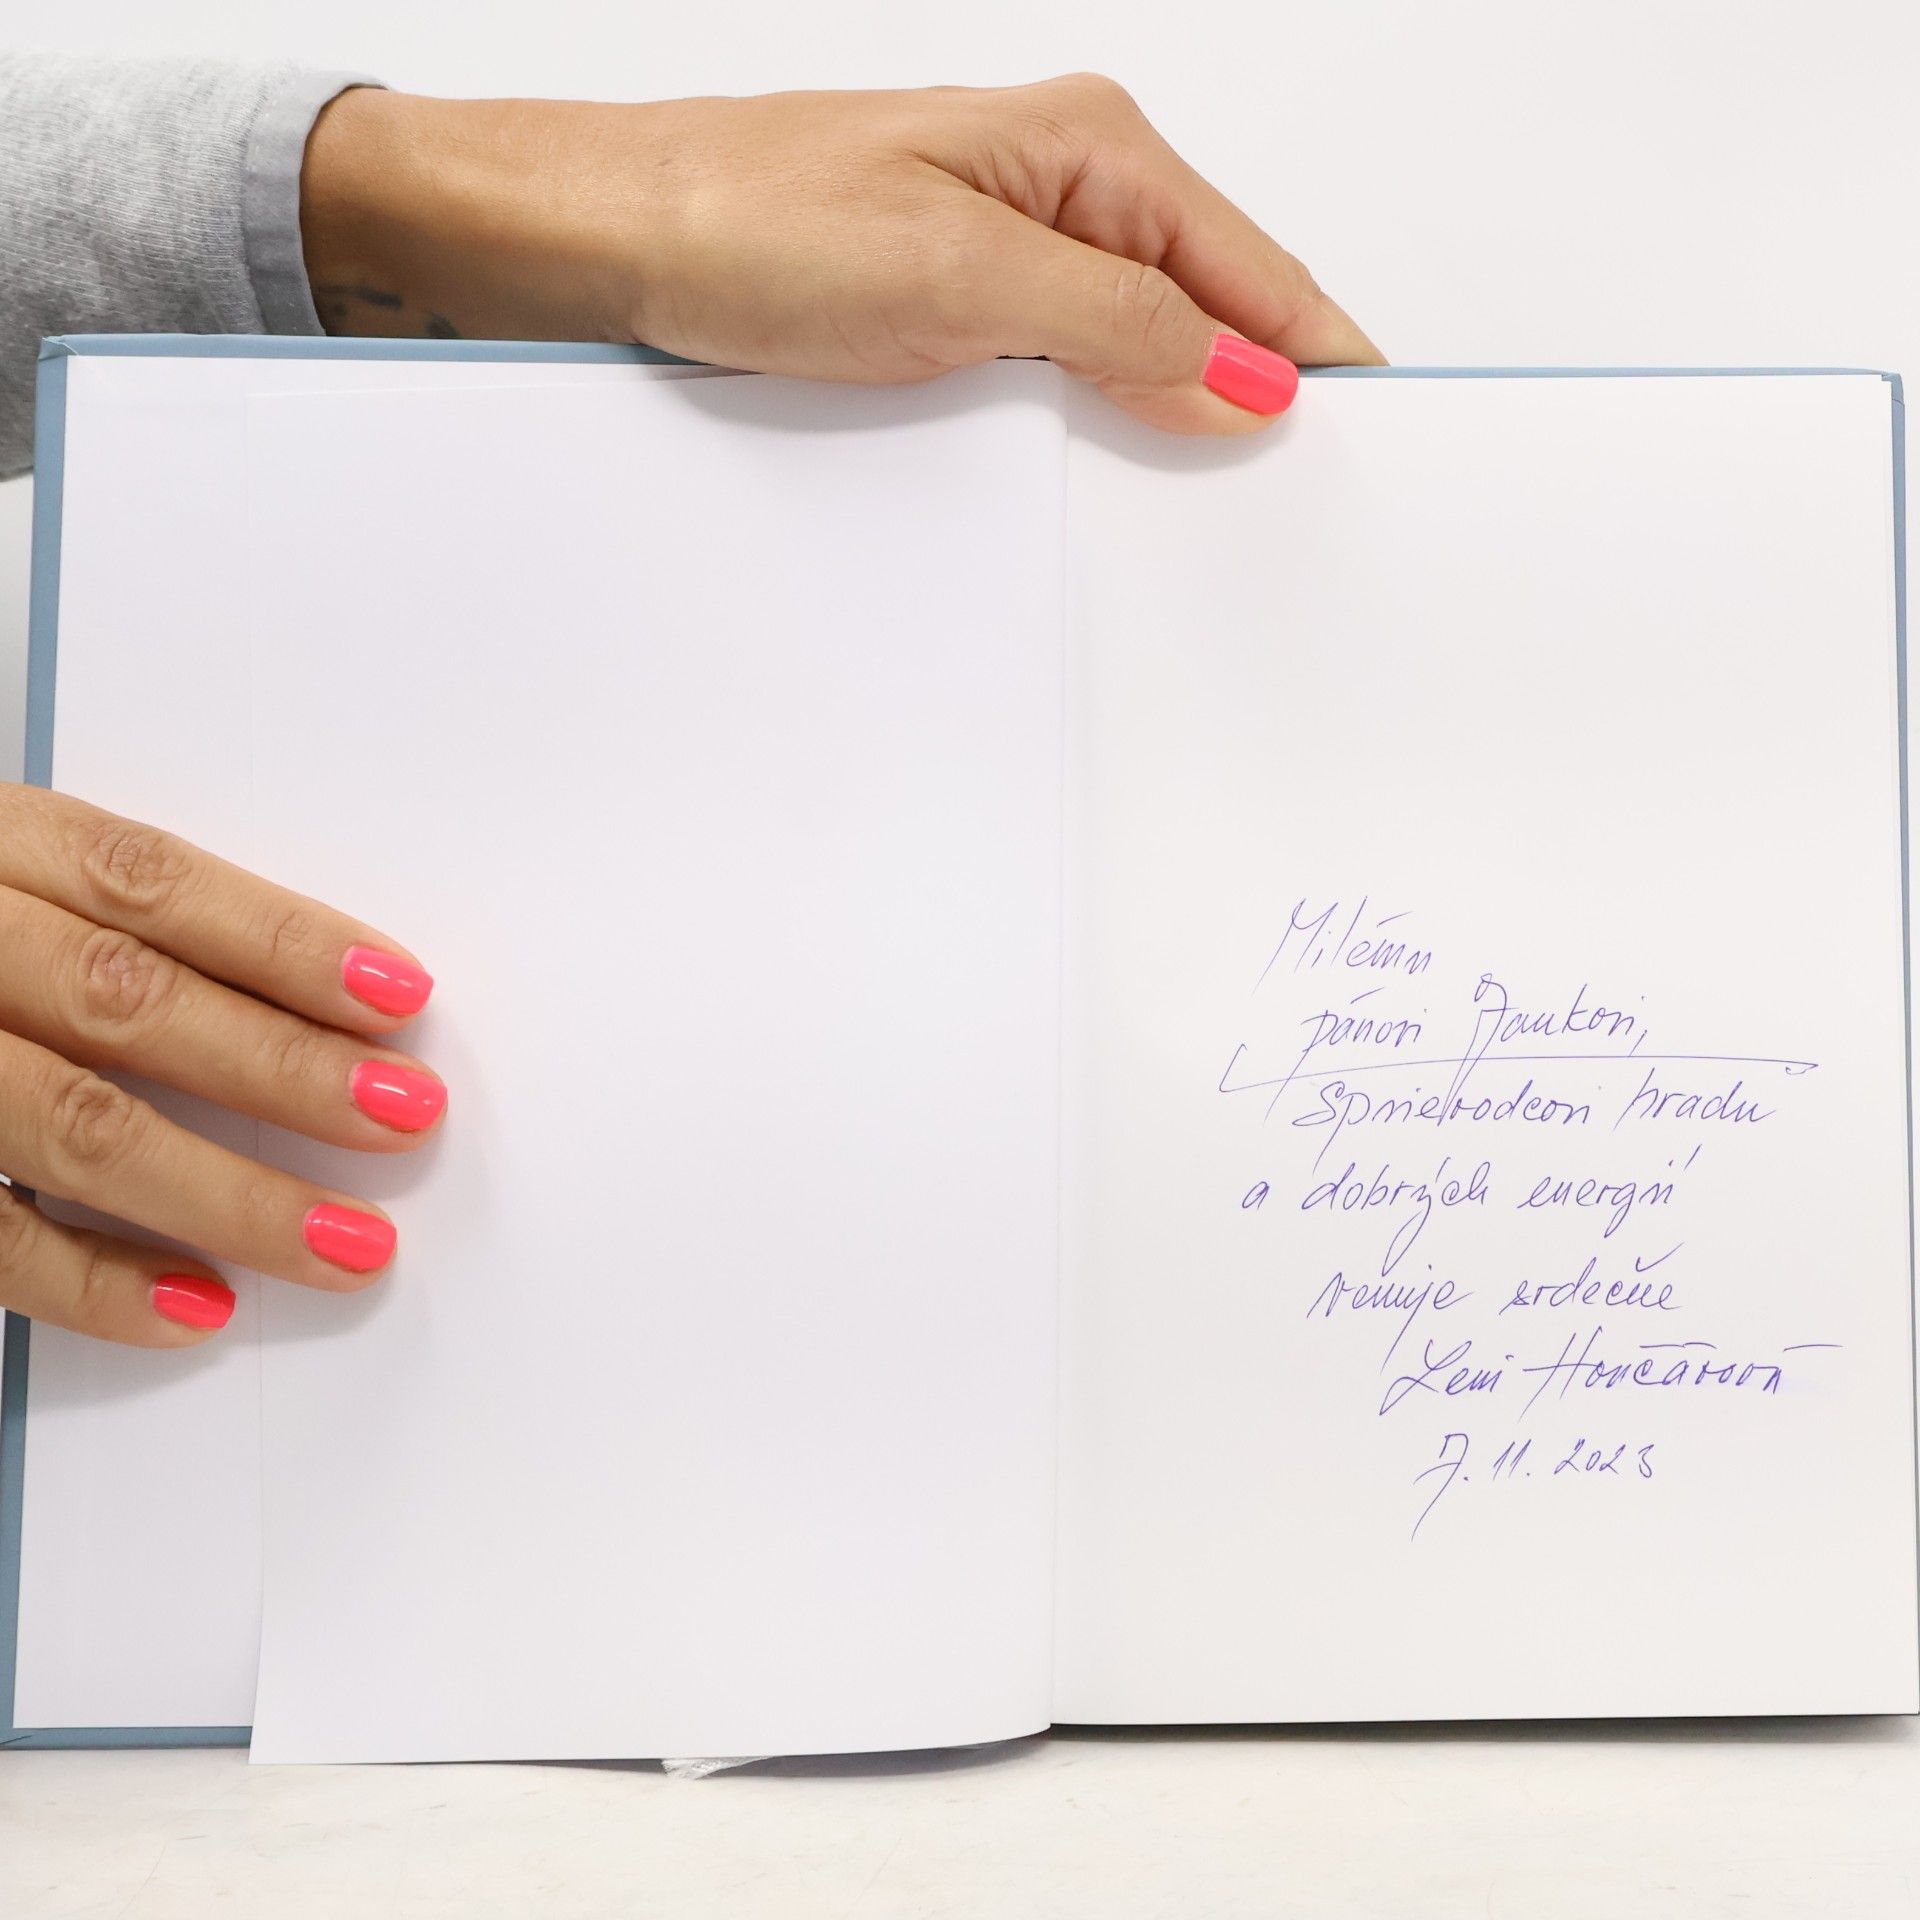 Milému
pánovi Jankovi,
Sprievodcovi hradu
a dobrých energií
venuje srdečne
Leni Hončárová
7. 11. 2023